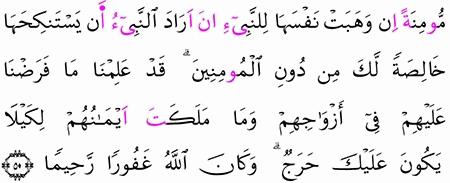 مُّومِنَةً اِن وَهَبَتْ نَفْسَهَا لِلنَّبِيٓءِ انَ اَرَادَ اَ۬لنَّبِيٓءُ اَ۬ن يَسْتَنكِحَهَا
خَالِصَةً لَّكَ مِن دُونِ اِ۬لْمُومِنِينَۖ قَدْ عَلِمْنَا مَا فَرَضْنَا
عَلَيْهِمْ فِےٓ أَزْوَٰجِهِمْ وَمَا مَلَكَتَ اَيْمَٰنُهُمْ لِكَيْلَا
يَكُونَ عَلَيْكَ حَرَجٌۖ وَكَانَ اَ۬للَّهُ غَفُورًا رَّحِيمًا ۝٥٠